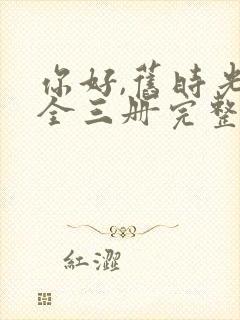 你好,舊時光
全三册完整
紅澀